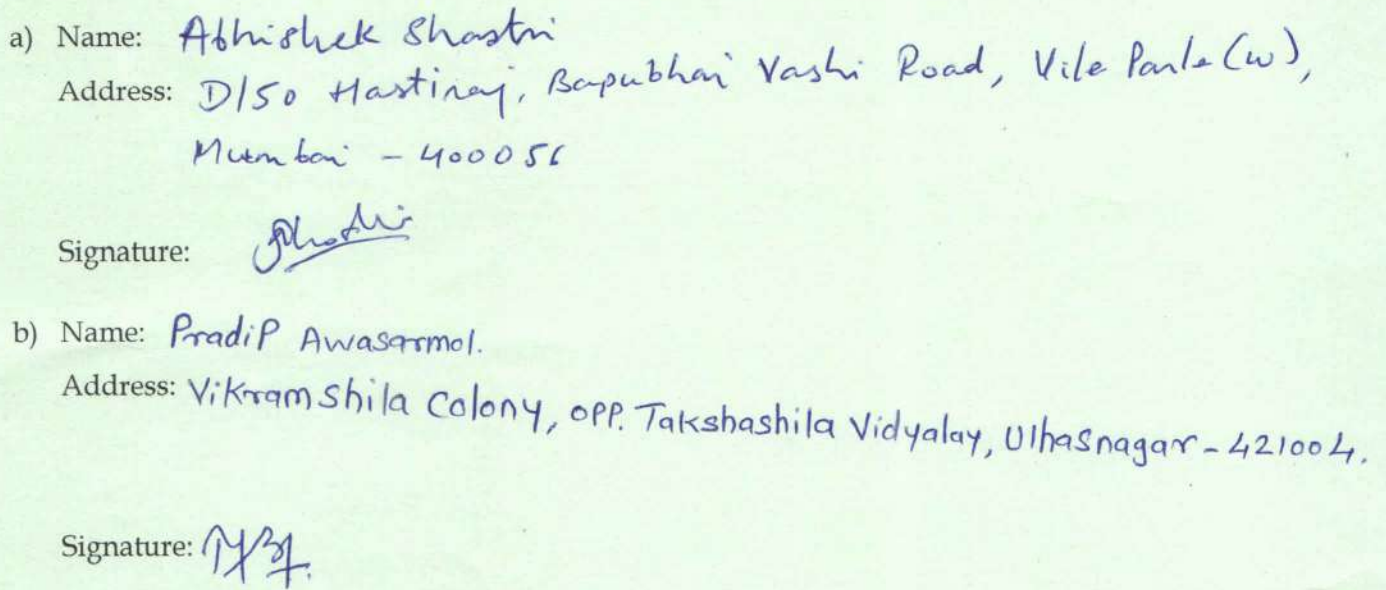 a) Name: Abhishek Shastri
Address: D/50 Hastiraj, Bapubhai Vashi Road, Vile Parle (W),
Mumbai - 400056
Signature:
b) Name: Pradip Awasarmol.
Address: Vikramshila Colony, opp. Takshashila Vidyalay, Ulhasnagar - 421004.
Signature: